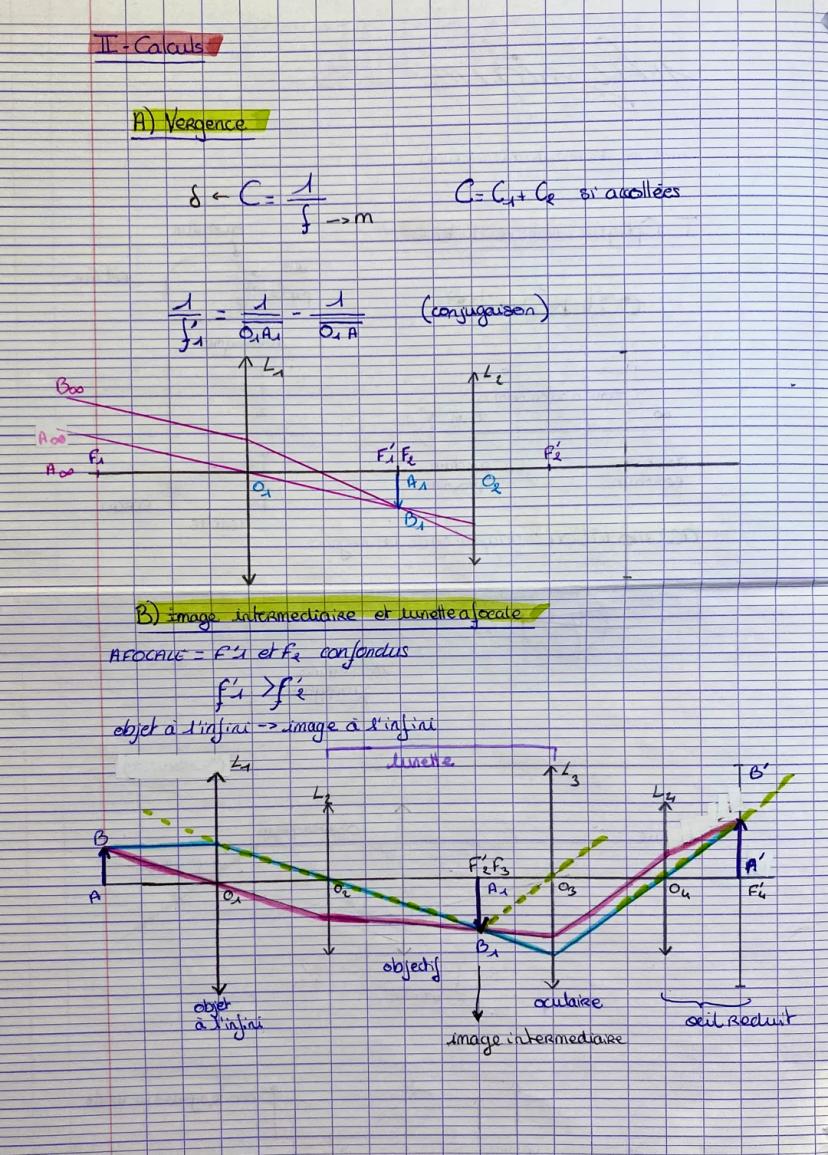 II - Calculs
A) Vergence
δ ← C = 1/f → m    C = C₁ + C₂ si accollées
1/f'₁ = 1/O₁A₁ - 1/O₁A (conjugaison)
L₁ L₂
B∞
A∞
F₁ F'₁ F₂ F'₂
A∞ O₁ A₁ O₂
B₁
B) image intermediaire et lunette afocale
AFOCALE = F'1 et F₂ confondus
f'₁ > f'₂
objet à l'infini -> image à l'infini
lunette
L₁ L₂ L₃ L₄ B'
B F'₂ F₃
A O₁ O₂ A₁ O₃ O₄ A' F'₄
B₁
objectif
objet
à l'infini
oculaire
oeil reduit
image intermediaire